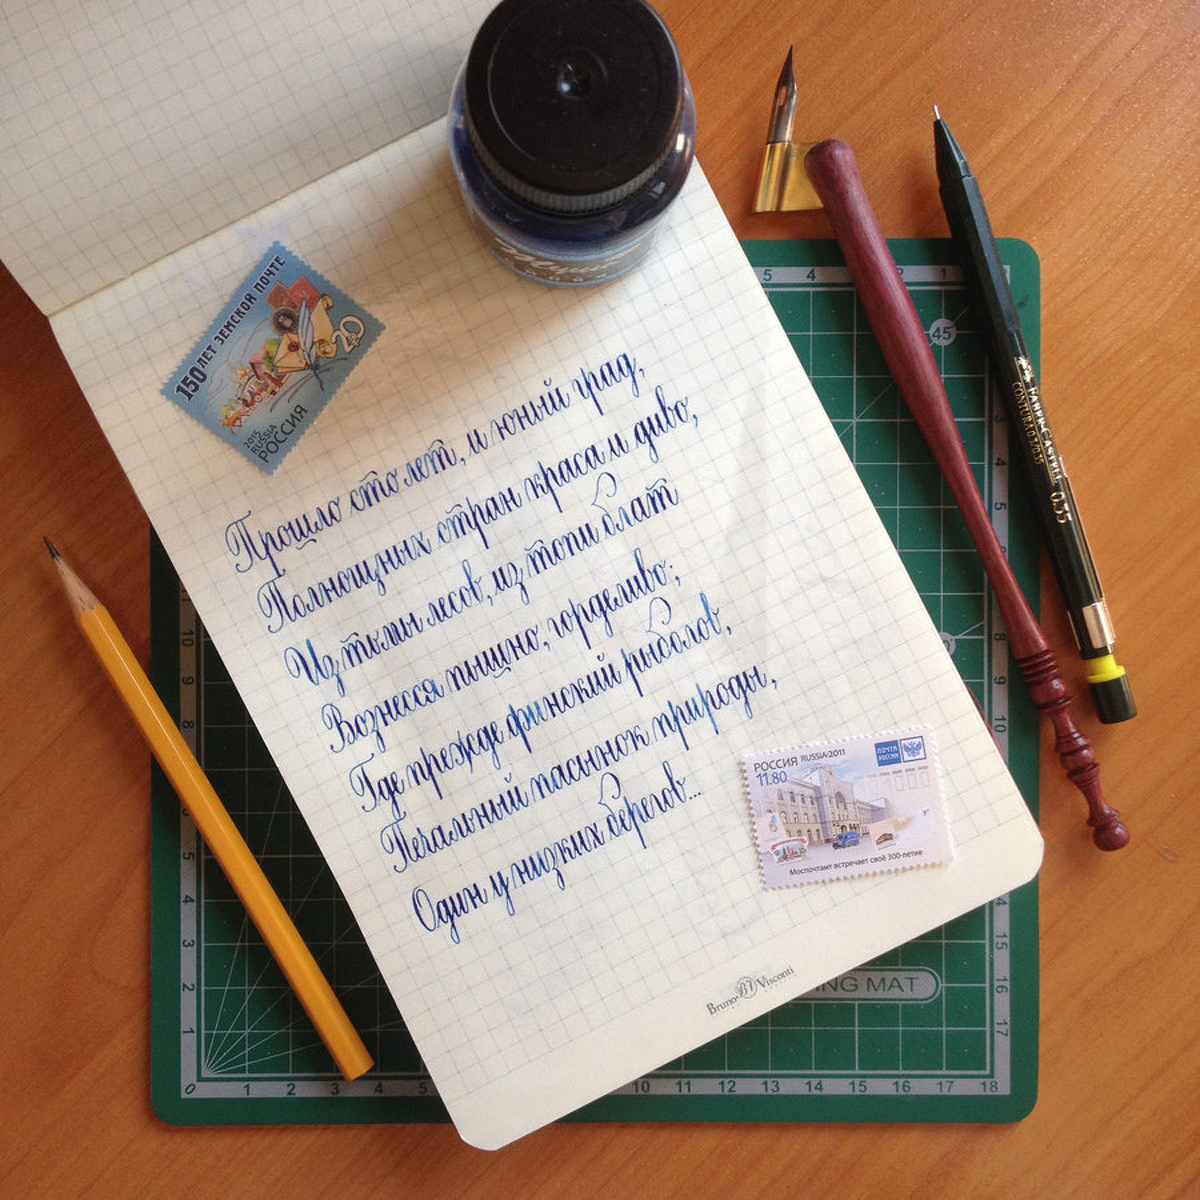 150 ЛЕТ ЗЕМСКОЙ ПОЧТЕ
20
2015
RUSSIA
РОССИЯ
Прошло сто лет, и юный град,
Полнощных стран краса и диво,
Из тьмы лесов, из топи блат
Вознесся пышно, горделиво;
Где прежде финский рыболов,
Печальный пасынок природы,
Один у низких берегов...
РОССИЯ RUSSIA·2011
11.80
ПОЧТА
РОССИИ
Моспочтамт встречает своё 300-летие
Bruno BV Visconti
FABER-CASTELL 0,35
CONTURA 0,3/0,35
5 4 2 1
45°
3 4 5 6 10 15 16 17
10 9 8 4 3 2 1
ING MAT
0 1 2 3 4 5 10 11 12 13 14 15 16 17 18